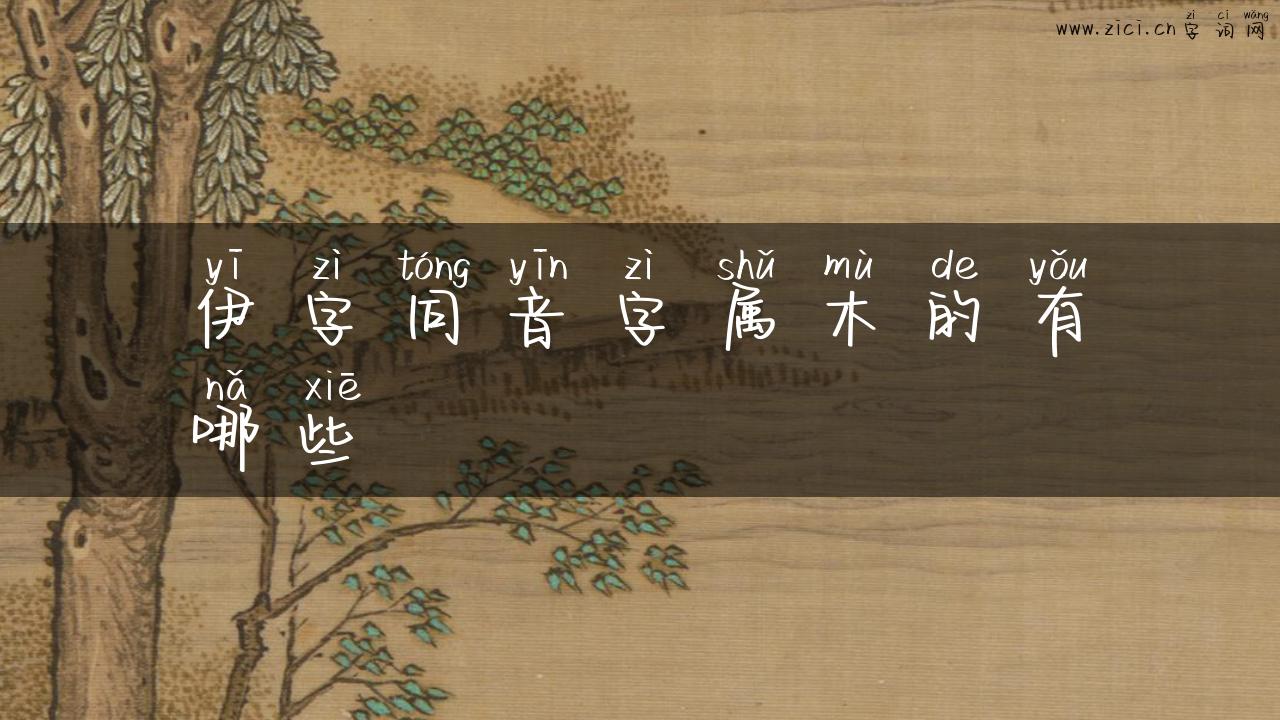 zì cí wǎng
www.zici.cn 字词网
yī zì tóng yīn zì shǔ mù de yǒu
伊字同音字属木的有
nǎ xiē
哪些